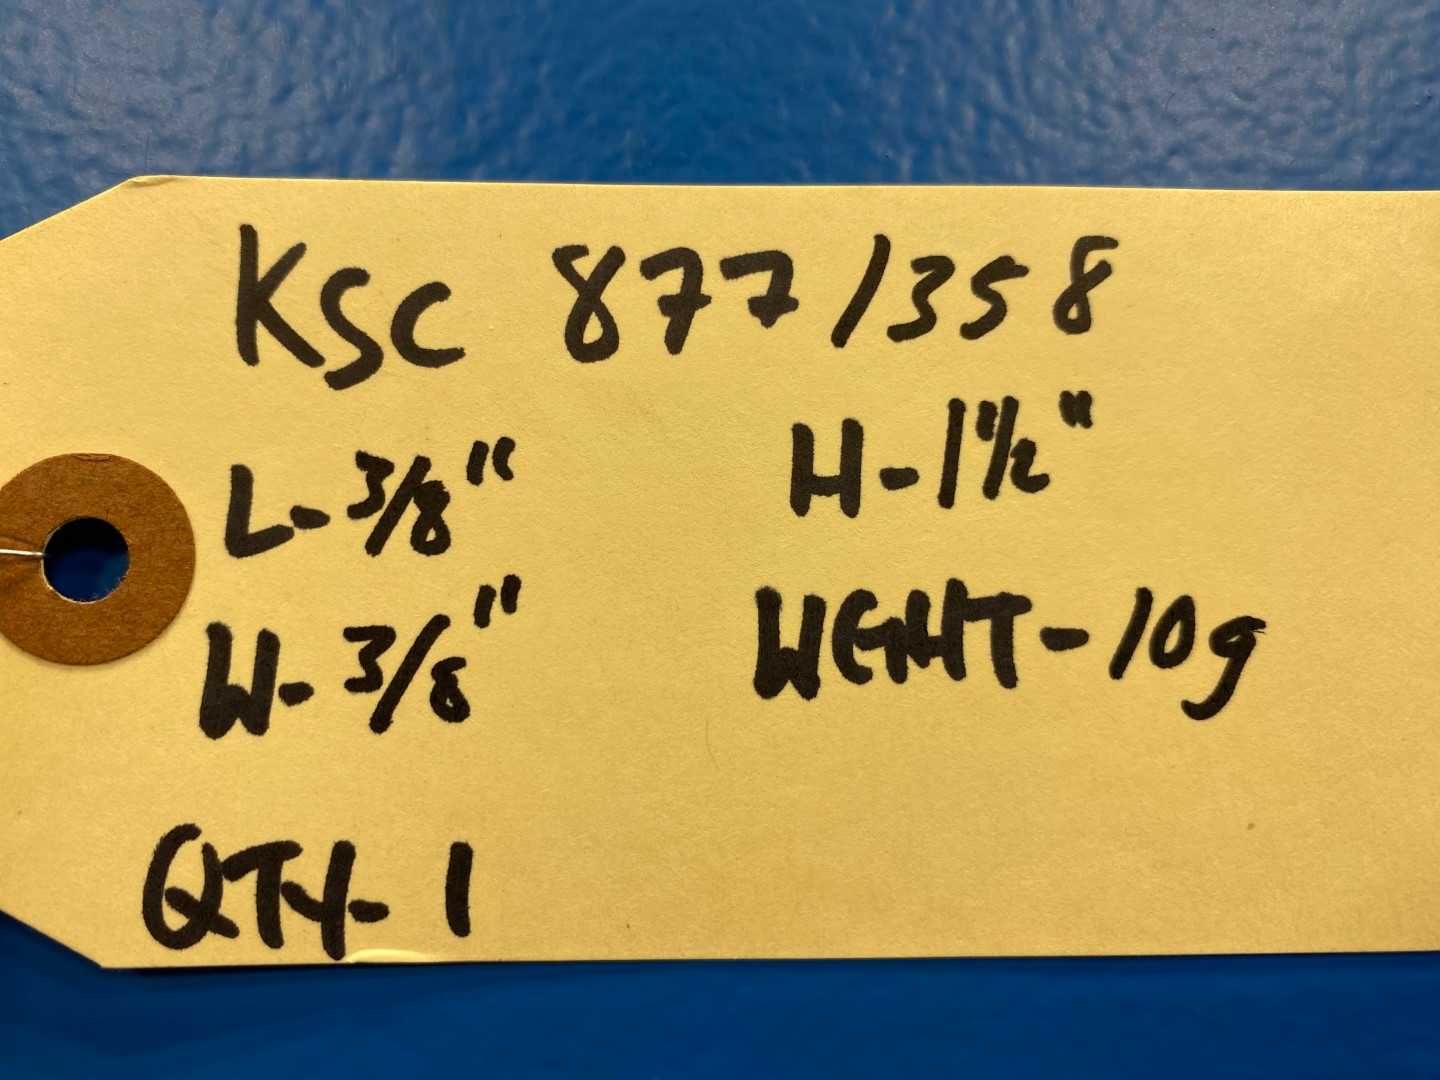 KSC 877/358
L-3/8" H-1 1/2"
W-3/8" WEHT-10g
QTY-1